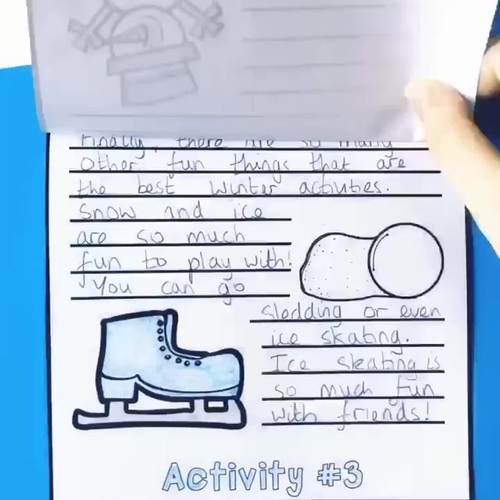 Finally, there are so many
other fun things that are
the best winter activities.
Snow and ice
are so much
fun to play with!
You can go
sledding or even
ice skating.
Ice skating is
so much fun
with friends!
Activity #3